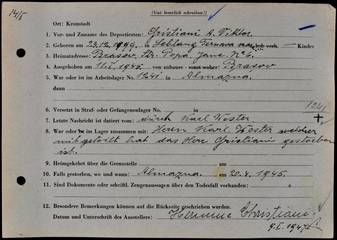 (Nur leserlich schreiben!)
Ort: Kronstadt
1. Vor- und Zuname des Deportierten: Christiani A. Viktor.
2. Geboren am 23.12.1899 in Kinder:
3. Heimatadresse: Brasov, Str. Popa Jane No 6.
4. Ausgehoben am 11.1.1945. von Brasov
5. War oder ist im Arbeitslager No 1241. in Almazna.
6. Versetzt in Straf- oder Gefangenenlager No. in
7. Letzte Nachricht ist datiert vom: durch Karl Wester
8. War oder ist im Lager zusammen mit: Herrn Karl Wester welcher
mit geteilt hat das Herr Christiani gestorben
ist.
9. Heimgekehrt über die Grenzstelle am
10. Falls gestorben, wo und wann: Almazna. am 20.4.1945.
11. Sind Dokumente oder schriftl. Zeugenaussagen über den Todesfall vorhanden:
12. Besondere Bemerkungen können auf die Rückseite geschrieben werden.
Datum und Unterschrift des Ausstellers: Hermine Christiani